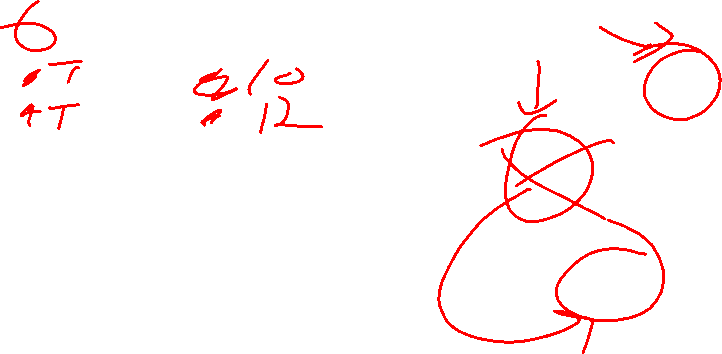 6
• T
T
10
• 12